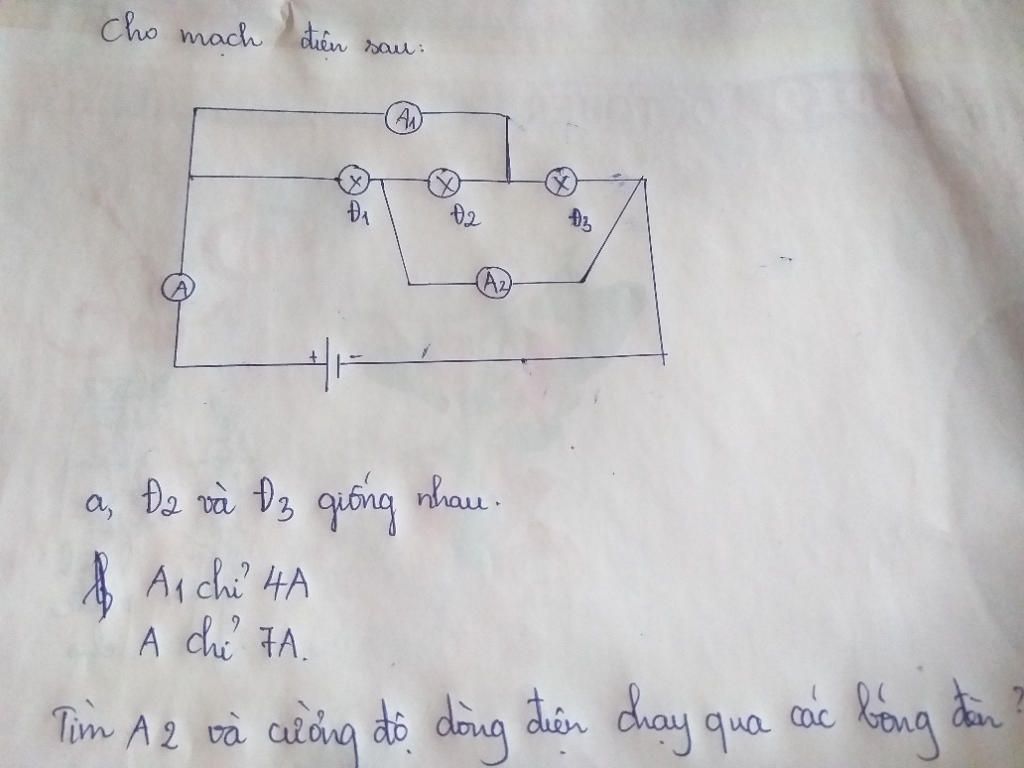 Cho mạch điện sau:
A1
X X X
Đ1 Đ2 Đ3
A A2
+ -
a, Đ2 và Đ3 giống nhau.
A1 chỉ 4A
A chỉ 7A.
Tìm A2 và cường độ dòng điện chạy qua các bóng đèn?